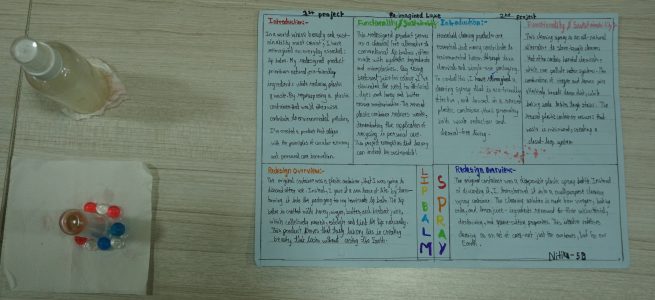 1st project Re-imagined Luxe 2nd project
Introduction:-
In a world where beauty and sust-
ainability must coexist, I have
reimagined an everyday essential:
lip balm. My redesigned product
promotes natural, eco-friendly
ingredients while reducing plastic
waste. By repurposing a plastic
container that would otherwise
contribute to environmental pollution,
I've created a product that aligns
with the principles of circular economy
and personal care innovation.
Functionality & Sustainability
This redesigned product serves
as a chemical-free alternative to
conventional lip balms, often
made with synthetic ingredients
and microplastics. By using
beetroot juice for colour, I've
eliminated the need for artificial
dyes and
The reused
plastic container reduces waste,
demonstrating the application of
recycling in personal care.
This project exemplifies that luxury
can indeed be sustainable!
Introduction:-
Household cleaning products are
essential but many contribute to
environmental harm through toxic
chemicals and single-use packaging.
To combat this, I have reimagined a
cleaning spray that is eco-friendly,
effective, and housed in a reused
plastic container, thus promoting
both waste reduction and
chemical-free living.
Functionality & Sustainability
This cleaning spray is an all-natural
alternative to store-bought cleaners
that often contain harmful chemicals
which can pollute water systems. The
combination of vinegar and lemon juice
effectively breaks down dirt, while
baking soda tackles tough stains. The
reused plastic container ensures that
waste is minimized, creating a
closed-loop system.
Redesign Overview:-
The original container was a plastic container that I was going to
discard after use. Instead, I gave it a new lease of life by trans-
forming it into the packaging for my homemade lip balm. The lip
balm is crafted with honey, and beetroot juice,
which
This product proves that true luxury lies in creating
beauty that lasts without costing the Earth.
LIP BALM
SPRAY
Redesign Overview:-
The original container was a disposable plastic spray bottle. Instead
of discarding it, I transformed it into a multipurpose cleaning
spray container. The cleaning solution is made from vinegar, baking
soda, and lemon juice - ingredients renowned for their antibacterial,
deodorizing, and properties. This creation redefines
cleaning as an act of care-not just for our homes, but for our
Earth.
Nitika-5B